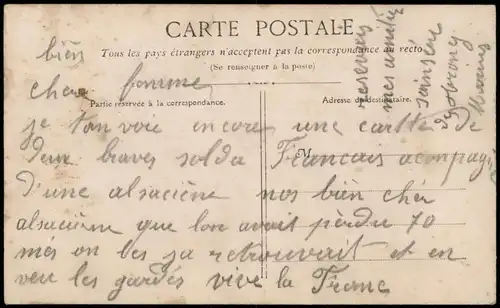 CARTE POSTALE
Tous les pays étrangers n'acceptent pas la correspondance au recto
(Se renseigner à la poste)
Partie réservée à la correspondance.
Adresse du destinataire.
M
bièn
cher fomme
je tonvoie encore une cartte de
deux braves solda Francais acompagé
d'une alsaciène nos bièn chér
alsacième que lon avait pèrdu 70
més on les ja retrouvait et en
veu les gardés vive la Franc
resevery
mes amitié
sainsér